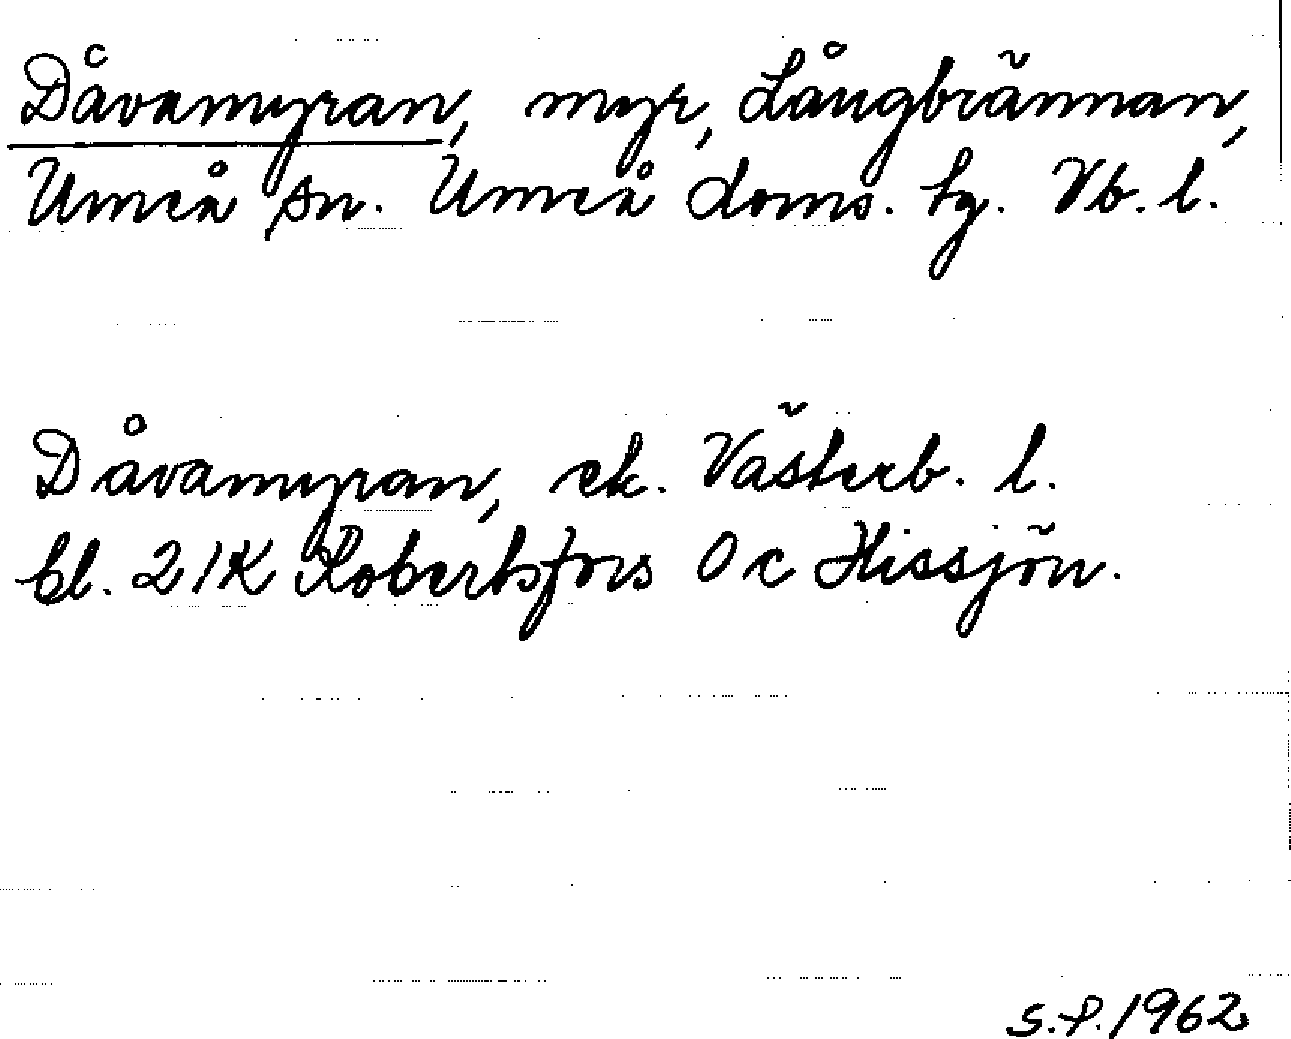 Dåvamyran, myr, Långbrännan,
Umeå sn. Umeå doms. tg. Vb. l.
Dåvamyran, ek. Västerb. l.
bl. 21K Robertsfors 0c Hissjön.
S.P. 1962